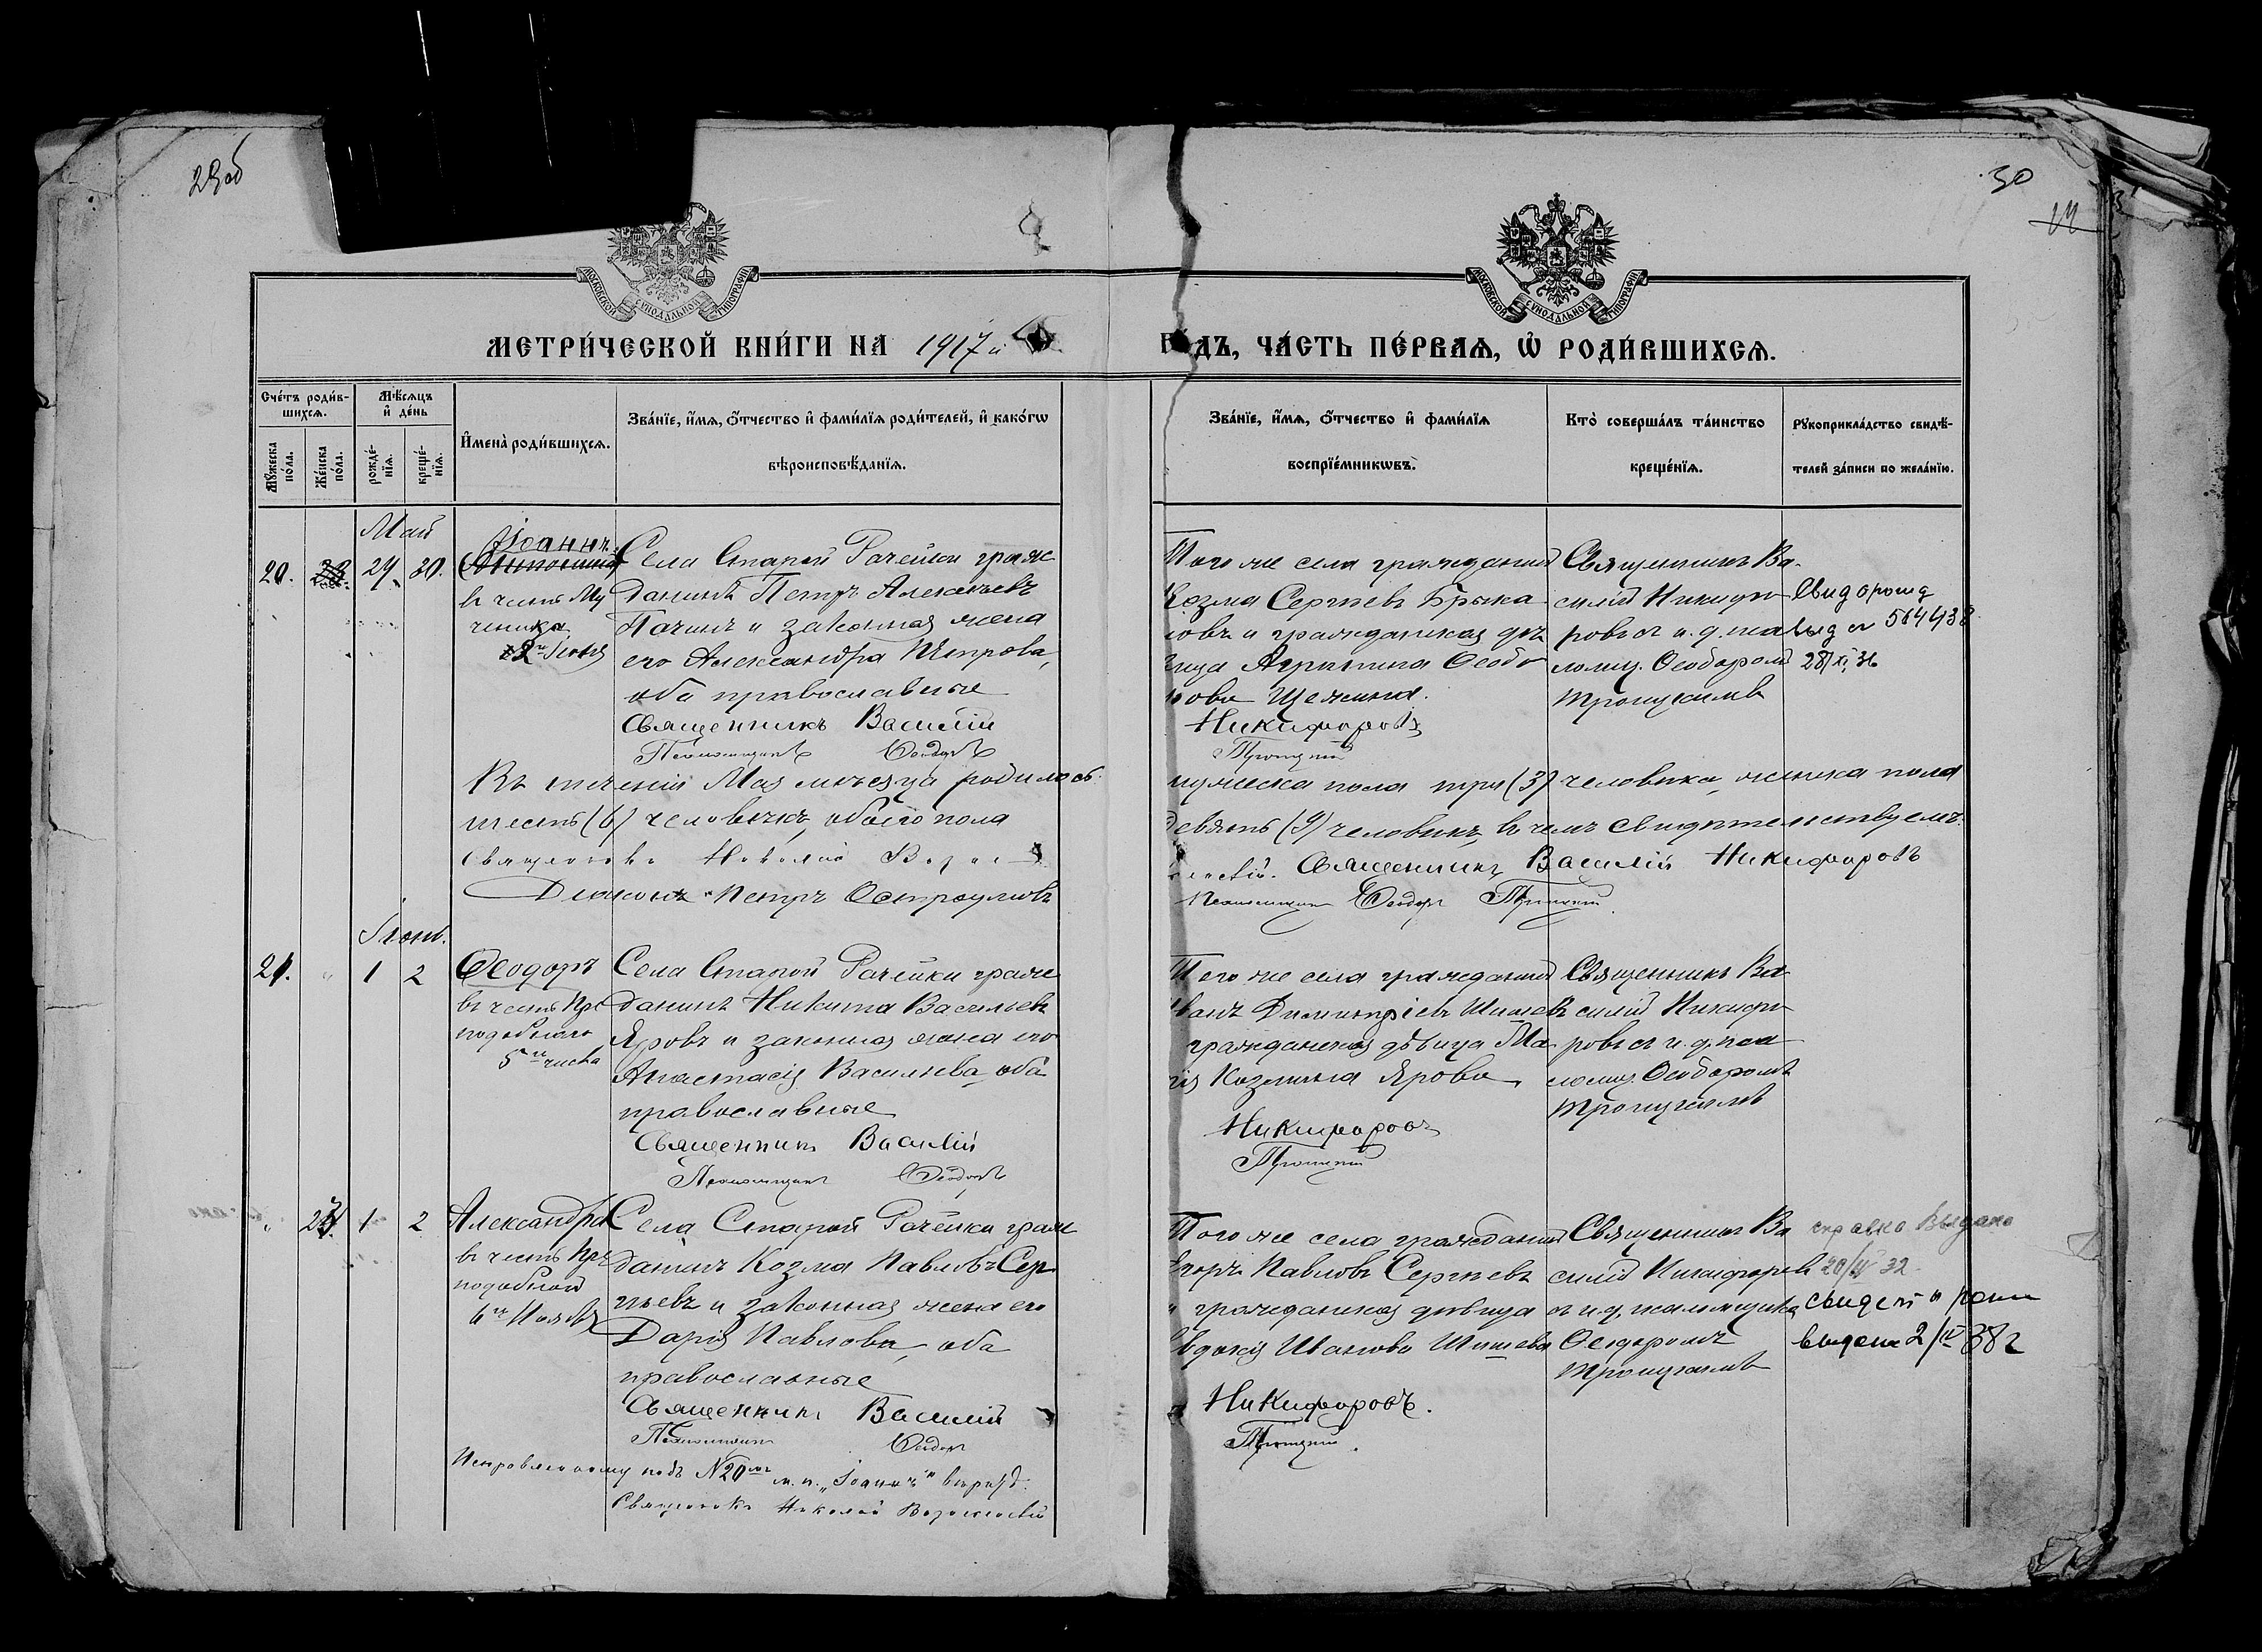 29об
30
14
МОСКОВСКОЙ СѴНОДАЛЬНОЙ ТИПОГРАФІИ
МОСКОВСКОЙ СѴНОДАЛЬНОЙ ТИПОГРАФІИ
МЕТРИ́ЧЕСКОЙ КНИ́ГИ НА 1917 й
ГОДЪ, ЧА́СТЬ ПЕ́РВАѦ, Ѡ РОДИ́ВШИХСѦ.
Сче́тъ роди́в-
шихсѧ.
Мѣ́сѧцъ
и҆ де́нь
Мꙋ́жеска по́ла.
Же́нска по́ла.
рожде́нїѧ.
креще́нїѧ.
И҆мена̀ роди́вшихсѧ.
Зва́нїе, и҆́мѧ, ѻ҆́тчество и҆ фами́лїѧ роди́телей, и҆ како́гѡ
вѣроисповѣ́данїѧ.
Зва́нїе, и҆́мѧ, ѻ҆́тчество и҆ фами́лїѧ
воспрїе́мникѡвъ.
Кто̀ соверша́лъ та́инство
креще́нїѧ.
Рꙋкоприкла́дство свидѣ́-
телей за́писи по жела́нїю.
Май
20. 29. 30.
Іоаннъ
въ честь Му
ченика
2го Іюня
Села Старой Рачейки граж
данинъ Петръ Алексѣевъ
Пачинъ и законная жена
его Александра Петрова,
оба православные
Священникъ Василій
Псаломщикъ Ѳеодоръ
Того же села гражданинъ
Козма Сергѣевъ Брыка
ловъ и гражданская дѣ
вица Агриппина Ѳеодо
рова Щекина.
Никифоровъ
Троицкій
Священникъ Ва-
силій Никифо
ровъ съ и. д. пса
ломщ. Ѳеодоромъ
Троицкимъ
Свид о рожд
выд № 564438
28/XI 36
Въ теченіи Мая мѣсяца родилось:
мужеска пола три (3) человѣка, женска пола
шесть (6) человѣкъ, обоего пола
девять (9) человѣкъ, въ чемъ свидѣтельствуемъ:
Священникъ Николай
Священникъ Василій Никифоровъ
Діаконъ Петръ Остроумовъ
Псаломщикъ Ѳеодоръ Троицкій
Іюнь.
21. " 1 2
Ѳеодоръ
въ честь Пре
подобнаго
5го числа
Села Старой Рачейки граж
данинъ Никита Васильевъ
Яровъ и законная жена его
Анастасія Васильева, оба
православные
Священникъ Василій
Псаломщикъ Ѳеодоръ
Того же села гражданинъ
Иванъ Димитріевъ Шишевъ
гражданская дѣвица Ма
рія Козмина Ярова
Никифоровъ
Троицкій
Священникъ Ва
силій Никифо
ровъ съ и. д. пса
ломщ. Ѳеодоромъ
Троицкимъ
" 1 2
Александра
въ честь Пре
подобной
6го Ноября
Села Старой Рачейки граж
данинъ Козма Павловъ Сер
гѣевъ и законная жена его
Дарія Павлова, оба
православные
Священникъ Василій
Псаломщикъ Ѳеодоръ
Того же села гражданинъ
Егоръ Павловъ Сергѣевъ
и гражданская дѣвица
Евдокія Иванова Шишева
Никифоровъ.
Троицкій
Священникъ Ва
силій Никифоровъ
съ и. д. псаломщика
Ѳеодоромъ
Троицкимъ
справка выдана
20/IV 32
свидет о рожд
выдан 2/IV 38 г
Исправленному подъ № 20мъ м. п. „Іоаннъ" вѣрить.
Священникъ Николай